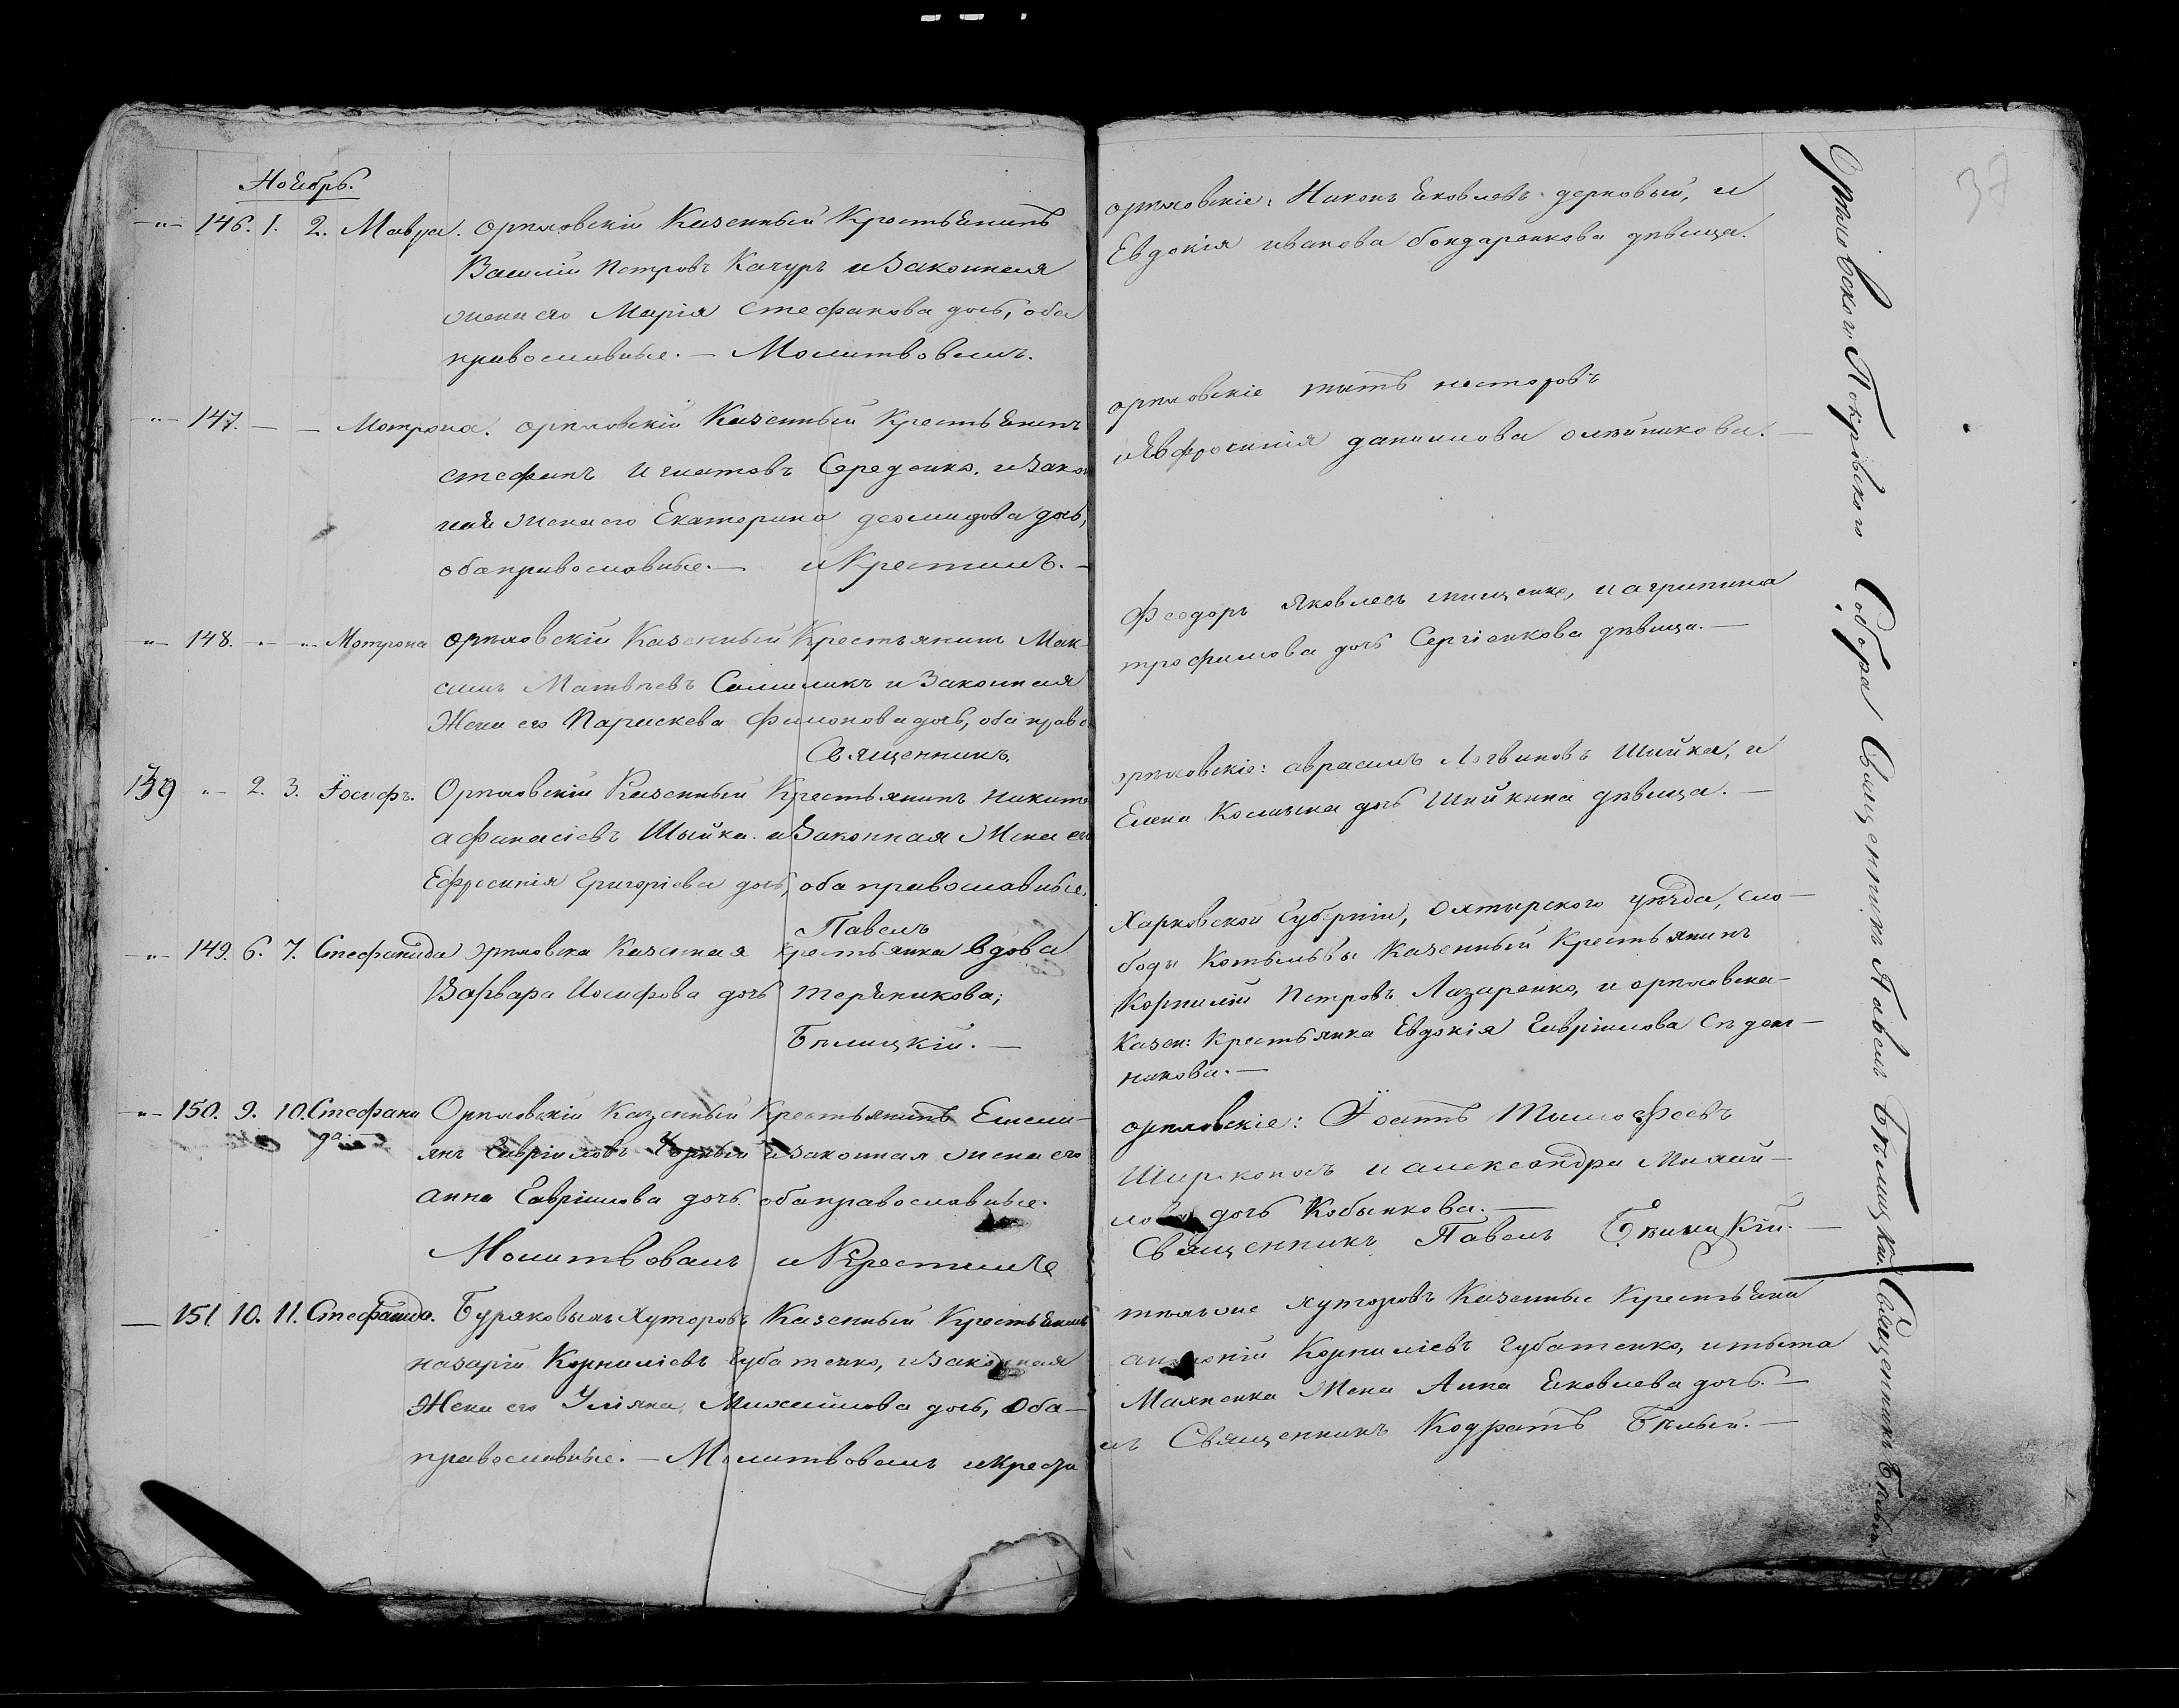 Ноябрь.
146. 1. 2. Мавра. Орѣловскій Казенный Крестьянинъ
Василій Петровъ Качуръ и Законная
жена его Марія Стефанова дочь, оба
православные. — Молитвовалъ
147. — — Мотрона. Орѣловскій Казенный Крестьянинъ
Стефанъ Игнатовъ Середенко, и Закон
ная жена его Екатерина дочь,
оба православные. — и Крестилъ. —
148. Мотрона Орѣловскій Казенный Крестьянинъ Мак-
симъ Матвѣевъ и Законная
Жена его Параскева Филонова дочь, оба право
Священникъ
139 2. 3. Іосифъ. Орѣловскій Казенный Крестьянинъ Никита
Афанасіевъ Шыйка и Законная Жена его
Ефросинія Григоріева дочь, оба православные.
Павелъ
149. 6. 7. Стефанида Орѣловска Казенная Крестьянка Вдова
Варвара Иосифова дочь
Бѣлицкій. —
150. 9. 10. Стефани
да. — Орѣловскій Казенный Крестьянинъ Емели-
янъ Гавріиловъ Чорный и Законная жена его
Анна Гавріилова дочь оба православные.
Молитвовалъ и Крестилъ
— 151. 10. 11. Стефанида. Буряковыхъ Хуторовъ Казенный Крестьянинъ
Назарій Корниліевъ Губатенко, и Законная
Жена его Уліяна Михайлова дочь, Оба —
православные. — Молитвовалъ и Крести
38
Орѣловскіе: Никонъ Яковлевъ и
Евдокія Иванова Бондаренкова дѣвица.
Орѣловскіе Несторовъ
и Евфросинія Данилова Олѣйникова. —
Феодоръ Яковлевъ и Агрипина
Трофимова дочь Сергіенкова дѣвица. —
Орѣловскіе: Аврамъ Логвиновъ Шыйка, и
Елена Космина дочь Шыйкина дѣвица. —
Харковской Губерніи, Охтырского уѣзда, Сло-
боды Котельвы Казенный Крестьянинъ
Корнилій Петровъ Лазаренко, и Орѣловска
Казен: Крестьянка Евдокія Гавріилова
никова. —
Орѣловскіе: Тимофѣевъ
и Александра Михай-
лова дочь Кобылкова. —
Священникъ Павелъ Бѣлицкій. —
тѣхъ же хуторовъ Казенные Крестьяне
Антоній Корниліевъ Губатенко, и
Жена Анна Яковлева дочь. —
лъ Священникъ Кодратъ Бѣлый. —
Орѣловского Покровского Собора Священникъ Павелъ Бѣлицкій. Священникъ Бѣлый